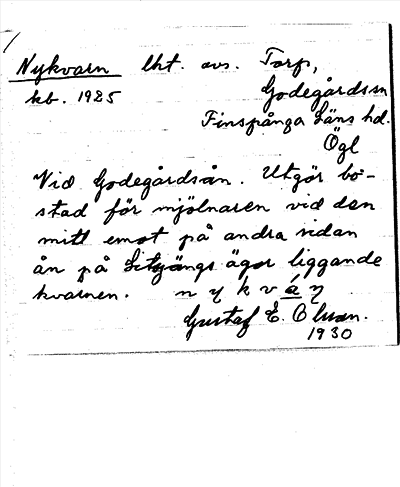 Nykvarn lht. avs. Torp,
kb. 1925 Godegårdssn
Finspånga Läns hd.
Ögl
Vid Godegårdsån. Utgör bo-
stad för mjölnaren vid den
mitt emot på andra sidan
ån på ägor liggande
kvarnen. nykváŋ
Gustaf E. Olsson.
1930